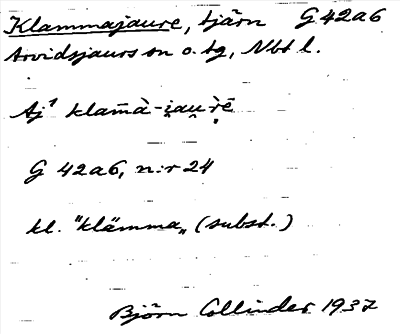 Klammajaure, tjärn G 42a6
Arvidsjaurs sn o. tg, Nbt l.
Aj¹ klam̄à-i̯au̯rḕ
G 42a6, n:r 24
kl. "klämma„ (subst.)
Björn Collinder 1937